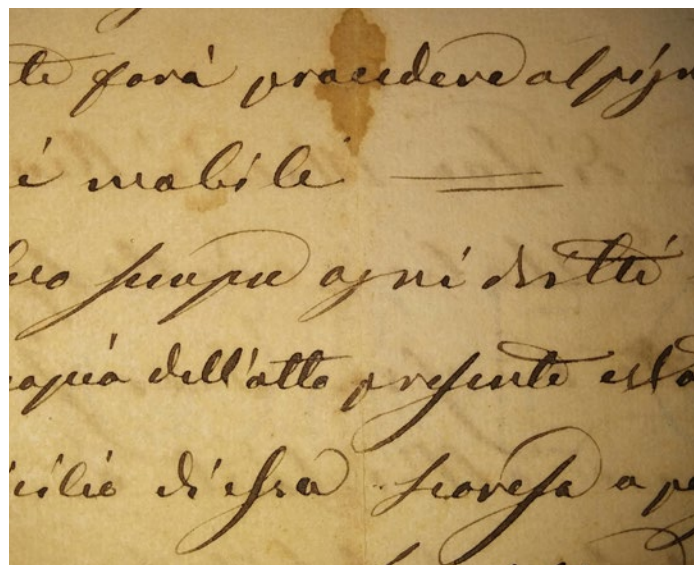 te farà procedere al pign
i mobili
lvo sempre ogni dritto
copia dell'atto presente esta
icilio di essa a pe